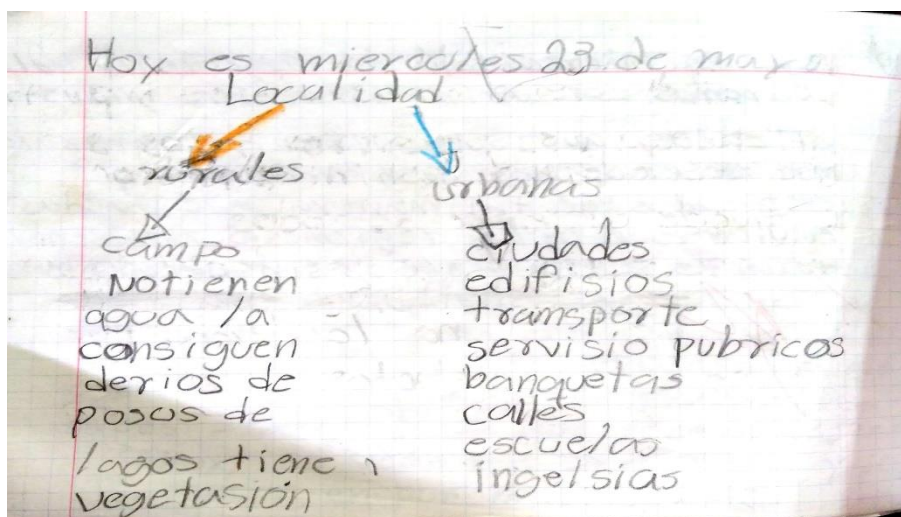 Hoy es miercoles 23 de mayo
Localidad
rurales
campo
Notienen
agua la
consiguen
derios de
posos de
lagos tiene
vegetasión
urbanas
ciudades
edifisios
transporte
servisio pubricos
banquetas
calles
escuelas
ingelsias